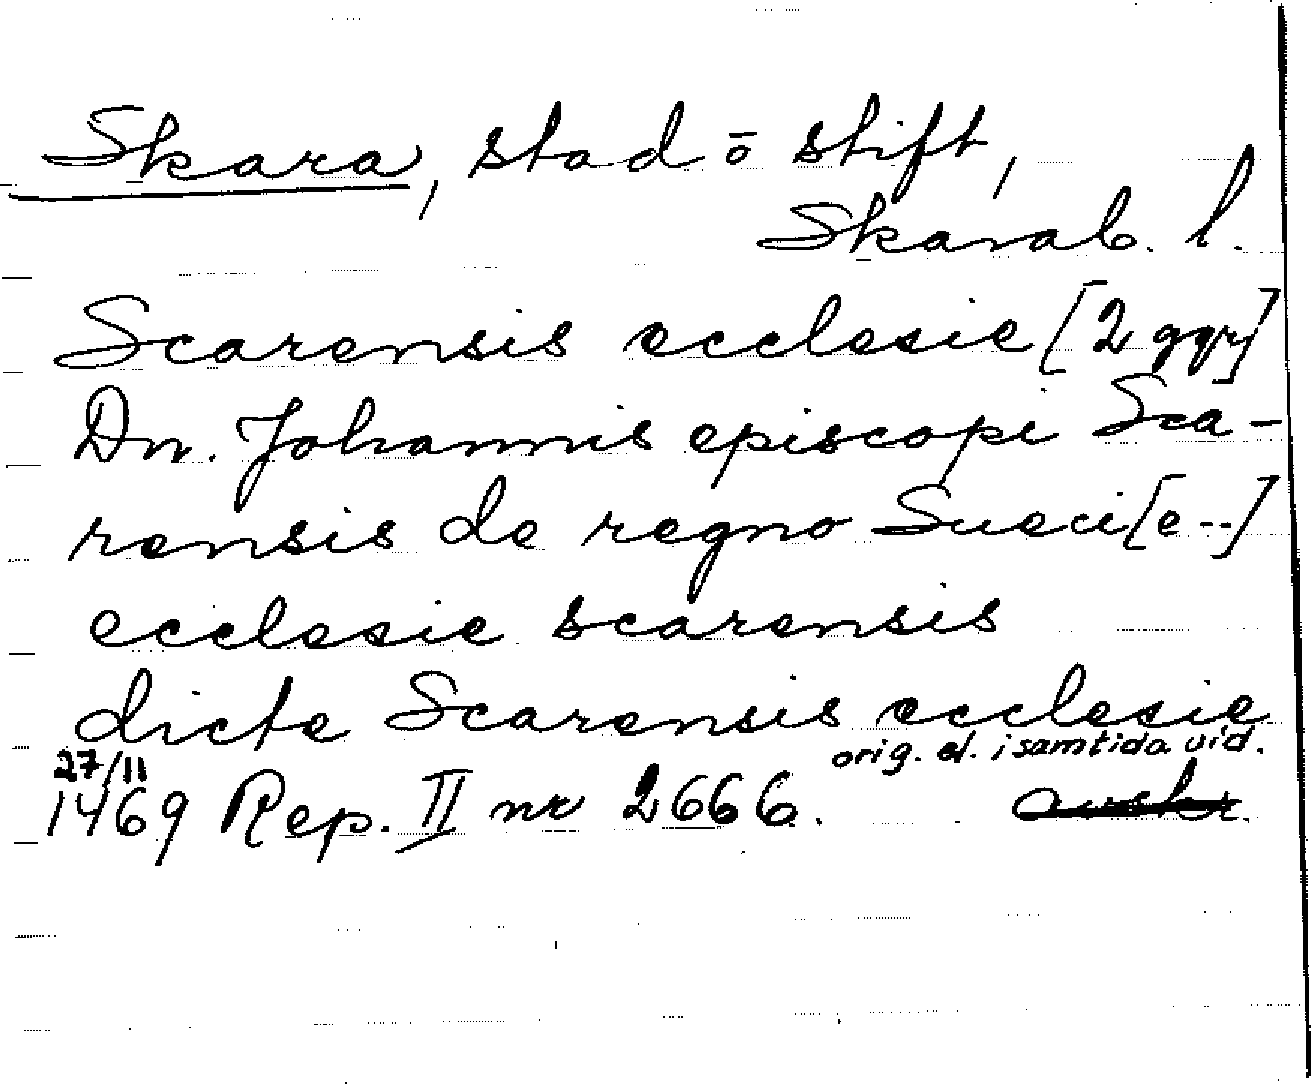 Skara, stad ō stift,
Skarab. l.
Scarensis ecclesie [2 ggr]
Dn. Johannis episcopi Sca-
rensis de regno Sueci[e--]
ecclesie scarensis
dicte Scarensis ecclesie
orig. el. i samtida vid.
27/11
1469 Rep. II nr 2666. avskr.